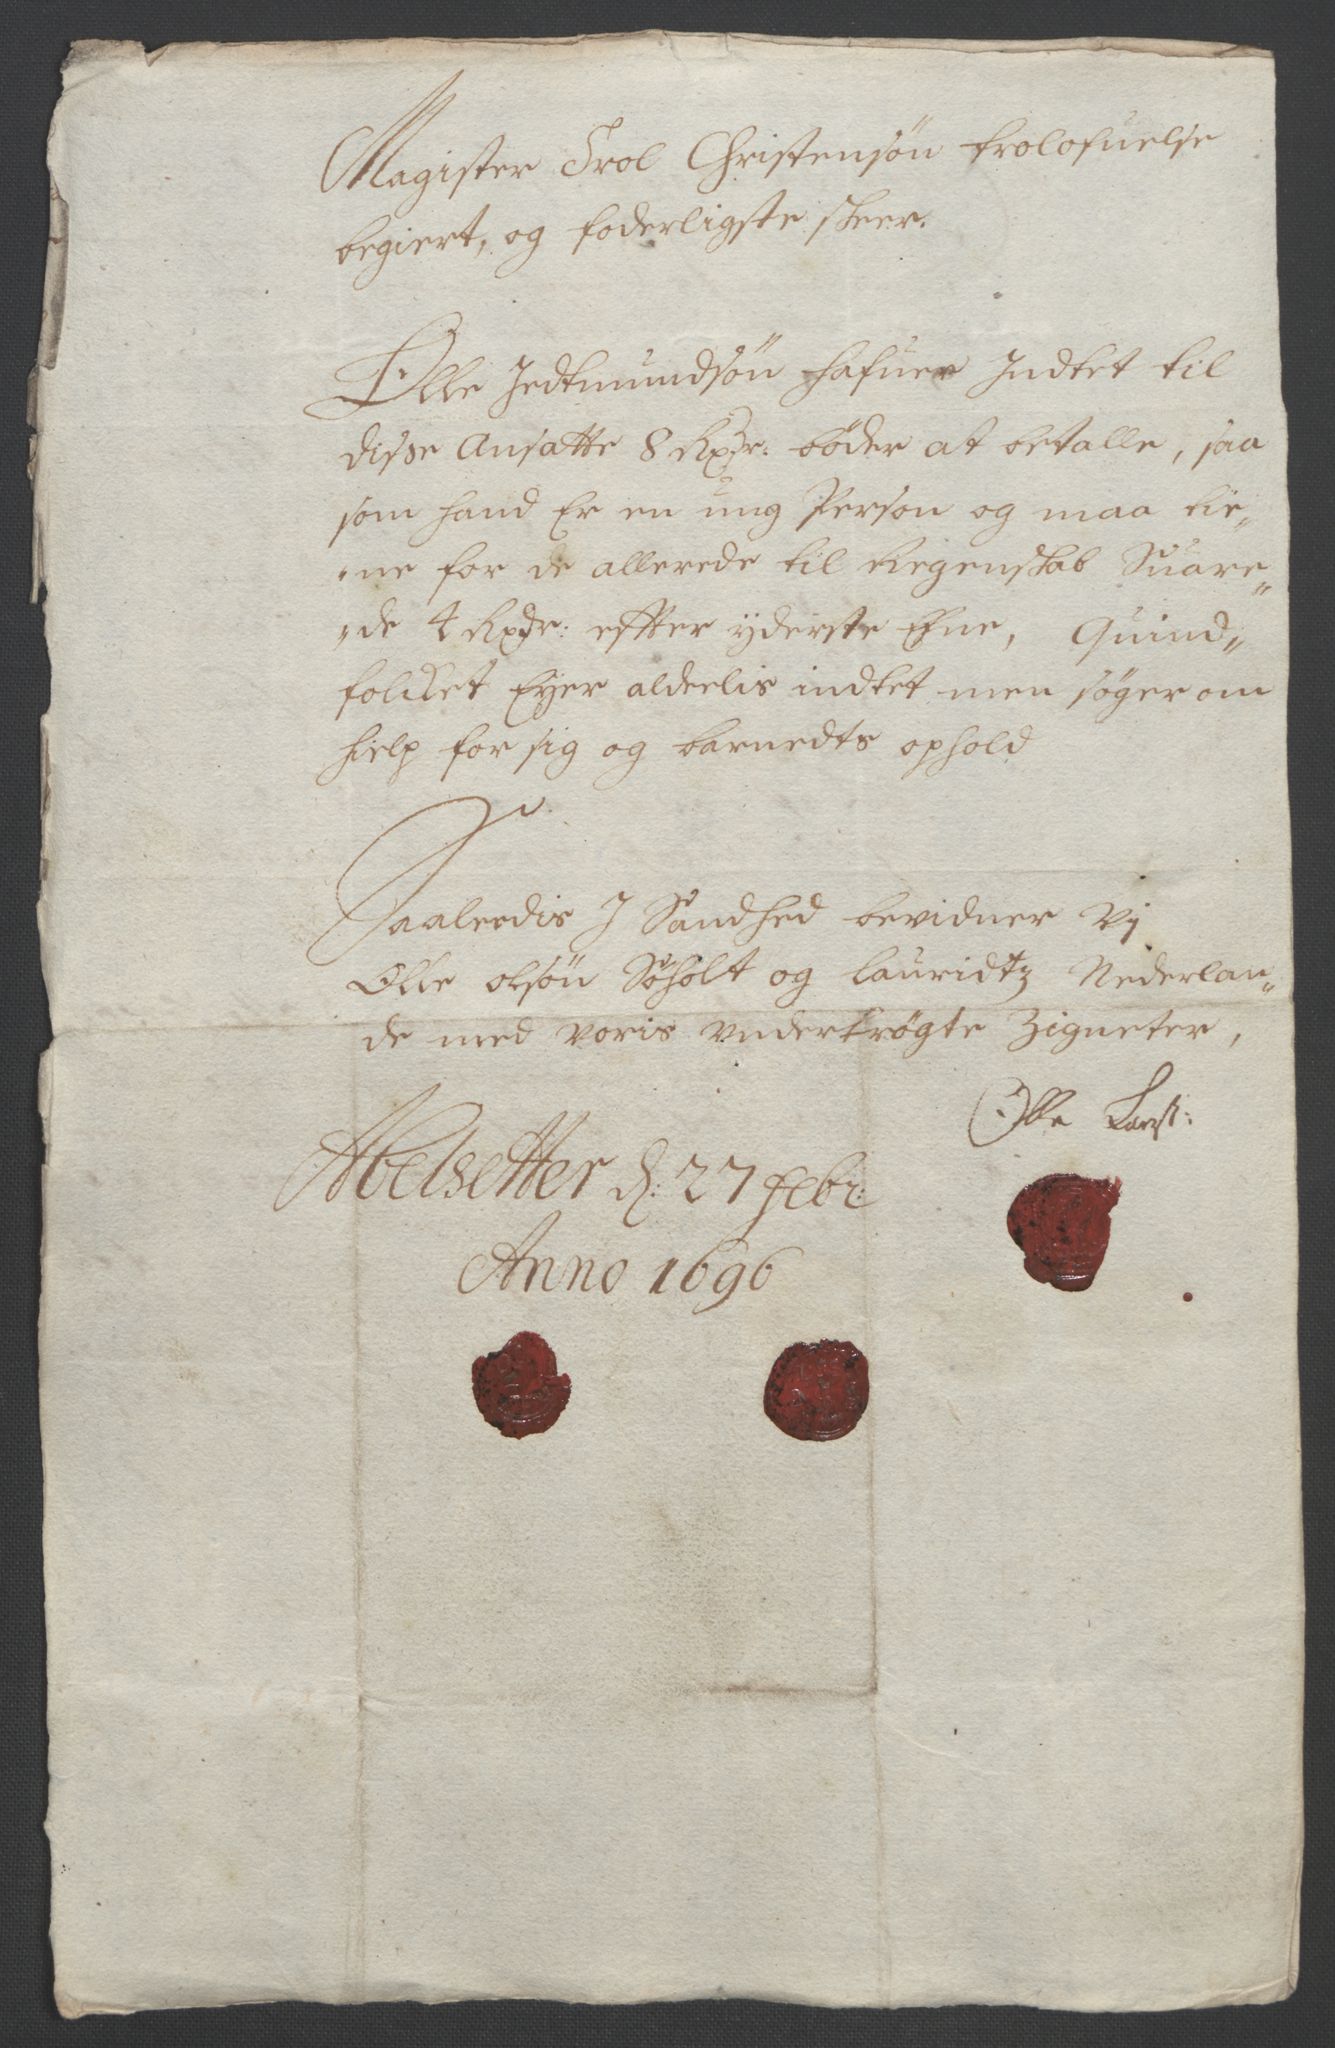 Magister Trol Christensøn trolofuelse
begiert, og foderligste skeer.
Olle Jedtmundsøn hafuer Indtet til
disse Ansatte 8 Rxdr: bøder at betalle, saa
som hand Er en ung Person og maa tie„
„ne for de allerede til Regenskab Suare„
„de 4 Rxdr: effter yderste Efne, Quind„
folchet Eyer aldeelis indtet men søger om
hielp for sig og barnedts ophold
Saaleedis J Sandhed bevidner Vj
Olle olsøn Søholt og lauridtz Nederlan„
de med voris vndertrögte Zigneter,
Olle Larsß:
Abelsetter d: 27 febr:
Anno 1696